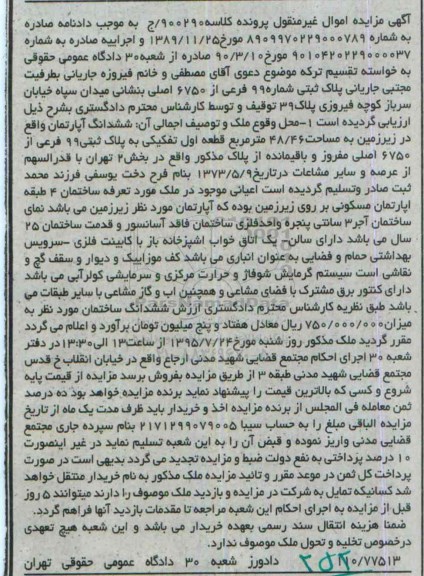 آگهی مزایده اموال غیرمنقول پرونده کلاسه۹۰۰۲۹۰/ج به موجب دادنامه صادره
به شماره ۸۹۰۹۹۷۰۲۲۹۰۰۰۷۸۹ مورخ۱۳۸۹/۱۱/۲۵ و اجراییه صادره به شماره
۹۰۱۰۴۲۰۲۲۹۰۰۰۰۳۷ مورخ۹۰/۳/۱۰ صادره از شعبه۳۰ دادگاه عمومی حقوقی
به خواسته تقسیم ترکه موضوع دعوی آقای مصطفی و خانم فیروزه جاریانی بطرفیت
مجتبی جاریانی پلاک ثبتی شماره۹۹ فرعی از ۶۷۵۰ اصلی بنشانی میدان سپاه خیابان
سرباز کوچه فیروزی پلاک۳۹ توقیف و توسط کارشناس محترم دادگستری بشرح ذیل
ارزیابی گردیده است ۱-محل وقوع ملک و توصیف اجمالی آن: ششدانگ آپارتمان واقع
در زیرزمین به مساحت۴۸/۴۶ مترمربع قطعه اول تفکیکی به پلاک ثبتی۹۹ فرعی از
۶۷۵۰ اصلی مفروز و باقیمانده از پلاک مذکور واقع در بخش۲ تهران با قدرالسهم
از عرصه و سایر مشاعات درتاریخ۱۳۷۳/۵/۹ بنام فرح دخت یوسفی فرزند محمد
ثبت صادر وتسلیم گردیده است اعیانی موجود در ملک مورد تعرفه ساختمان ۴ طبقه
اپارتمان مسکونی بر روی زیرزمین بوده که آپارتمان مورد نظر زیرزمین می باشد نمای
ساختمان آجر۳ سانتی پنجره واحدفلزی ساختمان فاقد آسانسور و قدمت ساختمان ۲۵
سال می باشد دارای سالن- یک اتاق خواب اشپزخانه باز با کابینت فلزی -سرویس
بهداشتی حمام و فضایی به عنوان انباری می باشد کف موزاییک و دیوار و سقف گچ و
نقاشی است سیستم گرمایش شوفاژ و حرارت مرکزی و سرمایشی کولرآبی می باشد
دارای کنتور برق مشترک با فضای مشاعی و همچنین اب و گاز مشاعی با سایر طبقات می
باشد طبق نظریه کارشناس محترم دادگستری ارزش ششدانگ ساختمان مورد نظر به
میزان۷۵۰/۰۰۰/۰۰۰ ریال معادل هفتاد و پنج میلیون تومان برآورد و اعلام می گردد
مقرر گردید ملک مذکور روز شنبه مورخ۱۳۹۵/۷/۲۴ از ساعت۱۳ الی۱۳:۳۰ در دفتر
شعبه ۳۰ اجرای احکام مجتمع قضایی شهید مدنی ارجاع واقع در خیابان انقلاب خ قدس
مجتمع قضایی شهید مدنی طبقه ۳ از طریق مزایده بفروش برسد مزایده از قیمت پایه
شروع و کسی که بالاترین قیمت را پیشنهاد نماید برنده مزایده خواهد بود ده درصد
ثمن معامله فی المجلس از برنده مزایده اخذ و خریدار باید ظرف مدت یک ماه از تاریخ
مزایده الباقی مبلغ را به حساب سیبا ۲۱۷۱۲۹۹۰۷۹۰۰۵ بنام سپرده جاری مجتمع
قضایی مدنی واریز نموده و قبض آن را به این شعبه تسلیم نماید در غیر اینصورت
۱۰ درصد پرداختی به نفع دولت ضبط و مزایده تجدید می گردد بدیهی است در صورت
پرداخت کل ثمن در موعد مقرر و تائید مزایده ملک مذکور به نام خریدار منتقل خواهد
شد کسانیکه تمایل به شرکت در مزایده و بازدید ملک موصوف را دارند میتوانند ۵ روز
قبل از مزایده به اجرای احکام این شعبه مراجعه تا مقدمات بازدید آنها فراهم گردد.
ضمنا هزینه انتقال سند رسمی بعهده خریدار می باشد و این شعبه هیچ تعهدی
درخصوص تخلیه و تحول ملک موصوف ندارد.
۱۱۰/۷۷۵۱۳ دادورز شعبه ۳۰ دادگاه عمومی حقوقی تهران